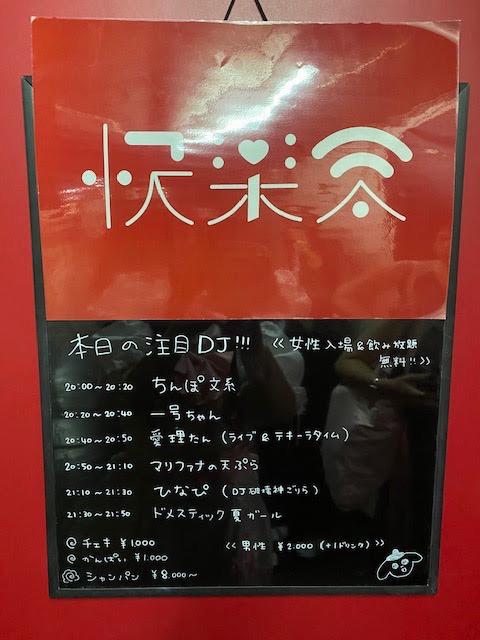 快楽祭
本日の注目DJ!!! << 女性入場&飲み放題
無料!! >>
20:00〜20:20 ちんぽ文系
20:20〜20:40 一号ちゃん
20:40〜20:50 愛理たん (ライブ&テキーラタイム)
20:50〜21:10 マリファナの天ぷら
21:10〜21:30 ひなぴ (DJ破壊神ごりら)
21:30〜21:50 ドメスティック夏ガール
@ チェキ ¥1,000 << 男性 ¥2,000 (+1ドリンク) >>
@ かんぱい ¥1,000
@ シャンパン ¥8,000〜